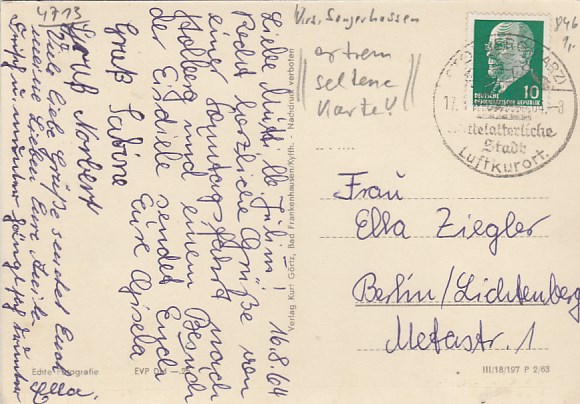 4713
Krs. Sangerhausen
extrem
seltene
Karte!
846
1,-
10
DEUTSCHE
DEMOKRATISCHE REPUBLIK
(HARZ)
17.
-8
Mittelalterliche
Stadt
Luftkurort.
16.8.64
Liebe Mutti, lb.
Recht herzliche Grüße von
einer Sonntagsfahrt nach
Stolberg und einem Besuch
der Eisdiele sendet Euch
Eure Gisela
Gruß Sabine
Gruß Norbert
Viele liebe Grüße sendet Euch
meine Lieben Eure
Ella.
Frau
Ella Ziegler
Berlin/Lichtenberg
Metastr. 1
Verlag Kurt Görtz, Bad Frankenhausen/Kyffh. - Nachdruck verboten
Echte Fotografie
EVP DM
III/18/197 P 2/63